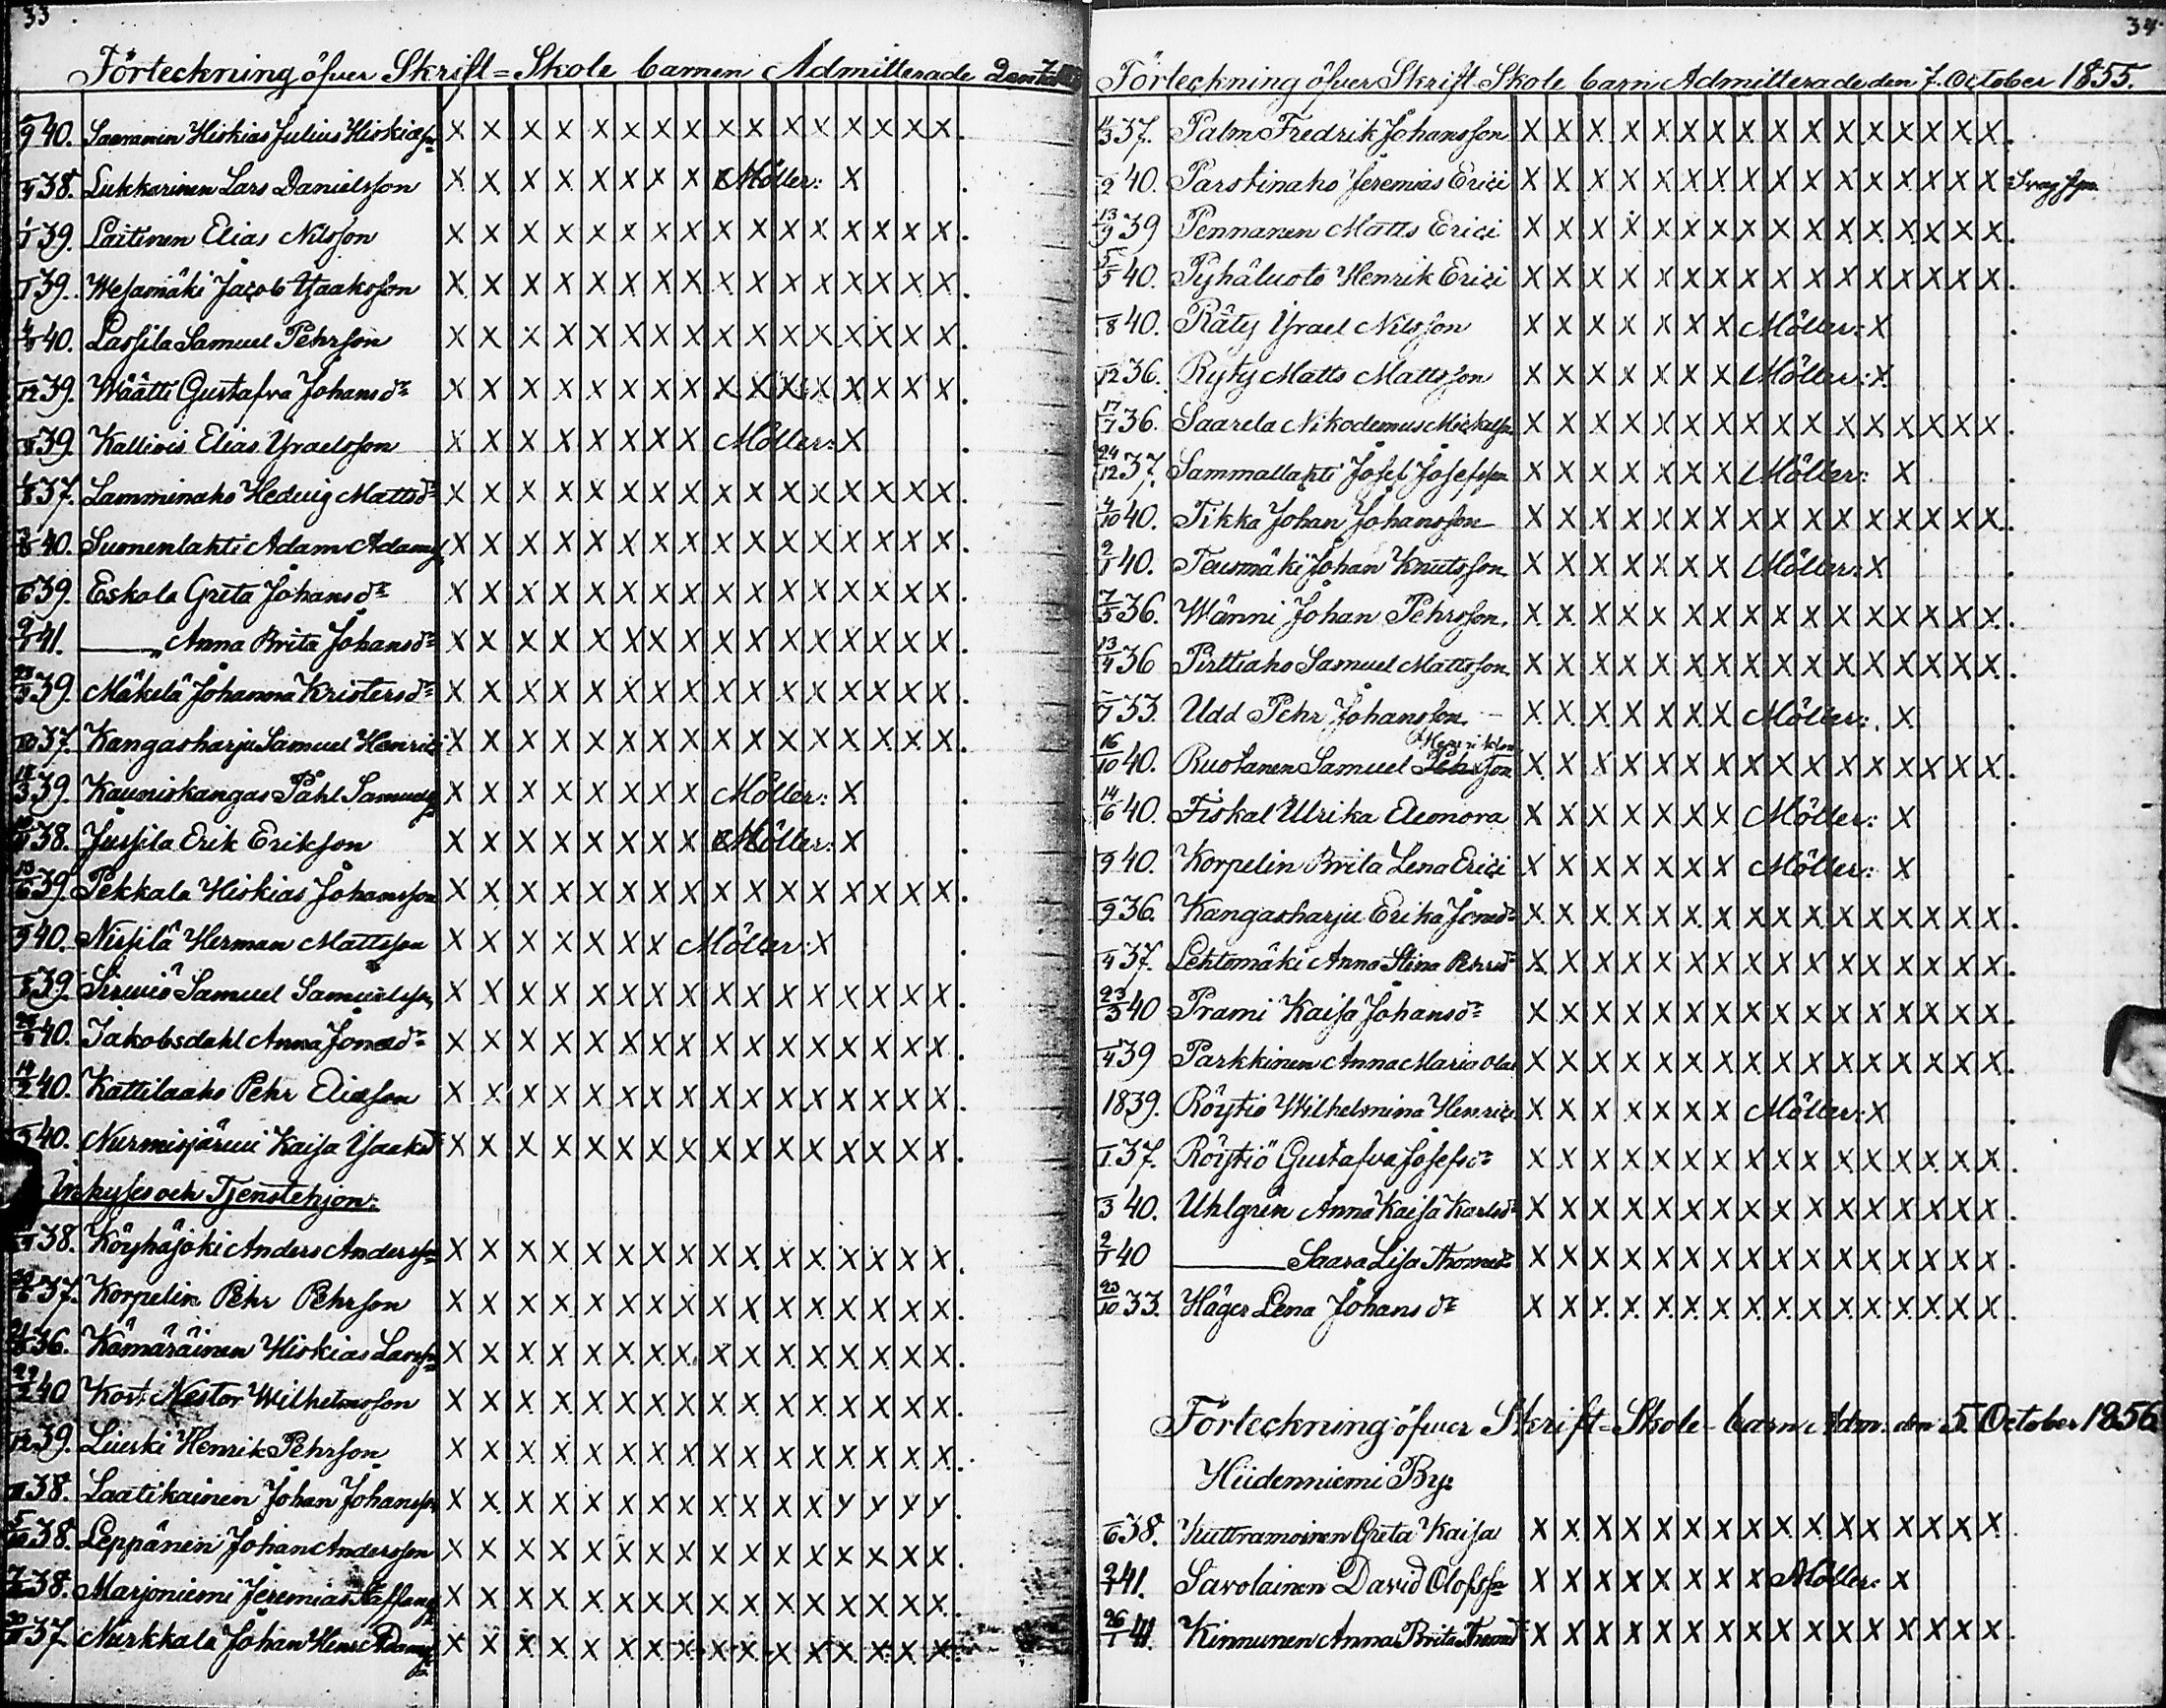 33
Förteckning öfver Skrift=Skole barnen Admitterade Den 7
9 40. Saaranen Hiskias Julius Hiskiasson X X X X X X X X X X X X X X X X
38. Lukkarinen Lars Danielsson X X X X X X X X Möller: X
1/1 39. Laitinen Elias Nilsson X X X X X X X X X X X X X X X X
1 39. Wesamäki Jacob Isaaksson X X X X X X X X X X X X X X X X
40. Lassila Samuel Pehrson X X X X X X X X X X X X X X X X
12 39. Wäätti Gustafva Johansdr X X X X X X X X X X X X X X X X
39. Kallivis Elias Israelsson X X X X X X X X Möller: X
37. Lamminaho Hedvig Mattsdr X X X X X X X X X X X X X X X X
40. Suonenlahti Adam Adams X X X X X X X X X X X X X X X X
6 39. Eskola Greta Johansdr X X X X X X X X X X X X X X X X
41. ——„ Anna Brita Johansdr X X X X X X X X X X X X X X X X
39. Mäkelä Johanna Kristersdr X X X X X X X X X X X X X X X X
10 37. Kangasharju Samuel Henrici X X X X X X X X X X X X X X X X
39. Kauniskangas Påhl Samuels X X X X X X X X Möller: X
38. Jussila Erik Erikson X X X X X X X X Möller: X
39. Pekkala Hiskias Johansson X X X X X X X X X X X X X X X X
40. Nissilä Herman Mattsson X X X X X X X Möller: X
39. Sirwiö Samuel Samuelsson X X X X X X X X X X X X X X X X
40. Jakobsdahl Anna Jonasdr X X X X X X X X X X X X X X X X
14/2 40. Kattilaaho Pehr Eliasson X X X X X X X X X X X X X X X X
40. Nurmisjärwi Kaisa Isaaksdr X X X X X X X X X X X X X X X X
Inhyses och Tjenstehjon:
38. Köyhäjoki Anders Andersson X X X X X X X X X X X X X X X X
37. Korpelin Pehr Pehrson X X X X X X X X X X X X X X X X
36. Kämäräinen Hiskias Larsson X X X X X X X X X X X X X X X X
40 Kort Nestor Wilhelmsson X X X X X X X X X X X X X X X X
12 39. Lieski Henrik Pehrson X X X X X X X X X X X X X X X X
38. Laatikainen Johan Johansson X X X X X X X X X X X X X X X X
38. Leppänen Johan Andersson X X X X X X X X X X X X X X X X
38. Marjoniemi Jeremias Staffans X X X X X X X X X X X X X X X X
37 Nurkkala Johan Henr Adams X X X X X X X X X X X X X X X X
34
Förteckning öfver Skrift-Skole barn Admitterade den 7. October 1855.
37. Palm Fredrik Johansson X X X X X X X X X X X X X X X X
2 40. Parstinaho Jeremias Erici X X X X X X X X X X X X X X X X
13/9 39 Pennanen Matts Erici X X X X X X X X X X X X X X X X
5/5 40. Pyhäluoto Henrik Erici X X X X X X X X X X X X X X X X
8 40. Räty Israel Nilsson X X X X X X X Möller: X
12 36. Ryty Matts Mattsson X X X X X X X Möller: X
17/7 36. Saarela Nikodemus Mickelson X X X X X X X X X X X X X X X X
24/12 37. Sammallahti Josef Josefsson X X X X X X X Möller: X
4/10 40. Tikka Johan Johansson X X X X X X X X X X X X X X X X
9/1 40. Teusmäki Johan Knutsson X X X X X X X Möller: X
7/5 36. Wänni Johan Pehrsson. X X X X X X X X X X X X X X X X
13/4 36 Pirttiaho Samuel Mattsson X X X X X X X X X X X X X X X X
7 33. Udd Pehr Johansson — X X X X X X X Möller: X
Henrikson
16/10 40. Ruotanen Samuel Pehrson X X X X X X X X X X X X X X X X
14/6 40. Fiskal Ulrika Eleonora X X X X X X X Möller: X
9 40. Korpelin Brita Lena Erici X X X X X X X Möller: X
9 36. Kangasharju Erika Jonasdr X X X X X X X X X X X X X X X X
4 37. Lehtomäki Anna Stina Pehrsdr X X X X X X X X X X X X X X X X
23/3 40 Prami Kaisa Johansdr X X X X X X X X X X X X X X X X
4 39 Parkkinen Anna Maria Olai X X X X X X X X X X X X X X X X
1839. Röytiö Wilhelmina Henrici X X X X X X X Möller: X
1 37. Röytiö Gustafva Josefsdr X X X X X X X X X X X X X X X X
3 40. Uhlgren Anna Kaisa Karlsdr X X X X X X X X X X X X X X X X
2/1 40 —— Saara Lisa Thomasdr X X X X X X X X X X X X X X X X
23/10 33. Häger Lena Johansdr X X X X X X X X X X X X X X X X
Förteckning öfver Skrift-Skole-barn Adm. den 5. October 1856
Hiidenniemi By:
6 38. Kuttramoinen Greta Kaisa X X X X X X X X X X X X X X X X
2/1 41. Savolainen David Olofsson X X X X X X X X Möller: X
26/1 41. Kinnunen Anna Brita Thomasdr X X X X X X X X X X X X X X X X